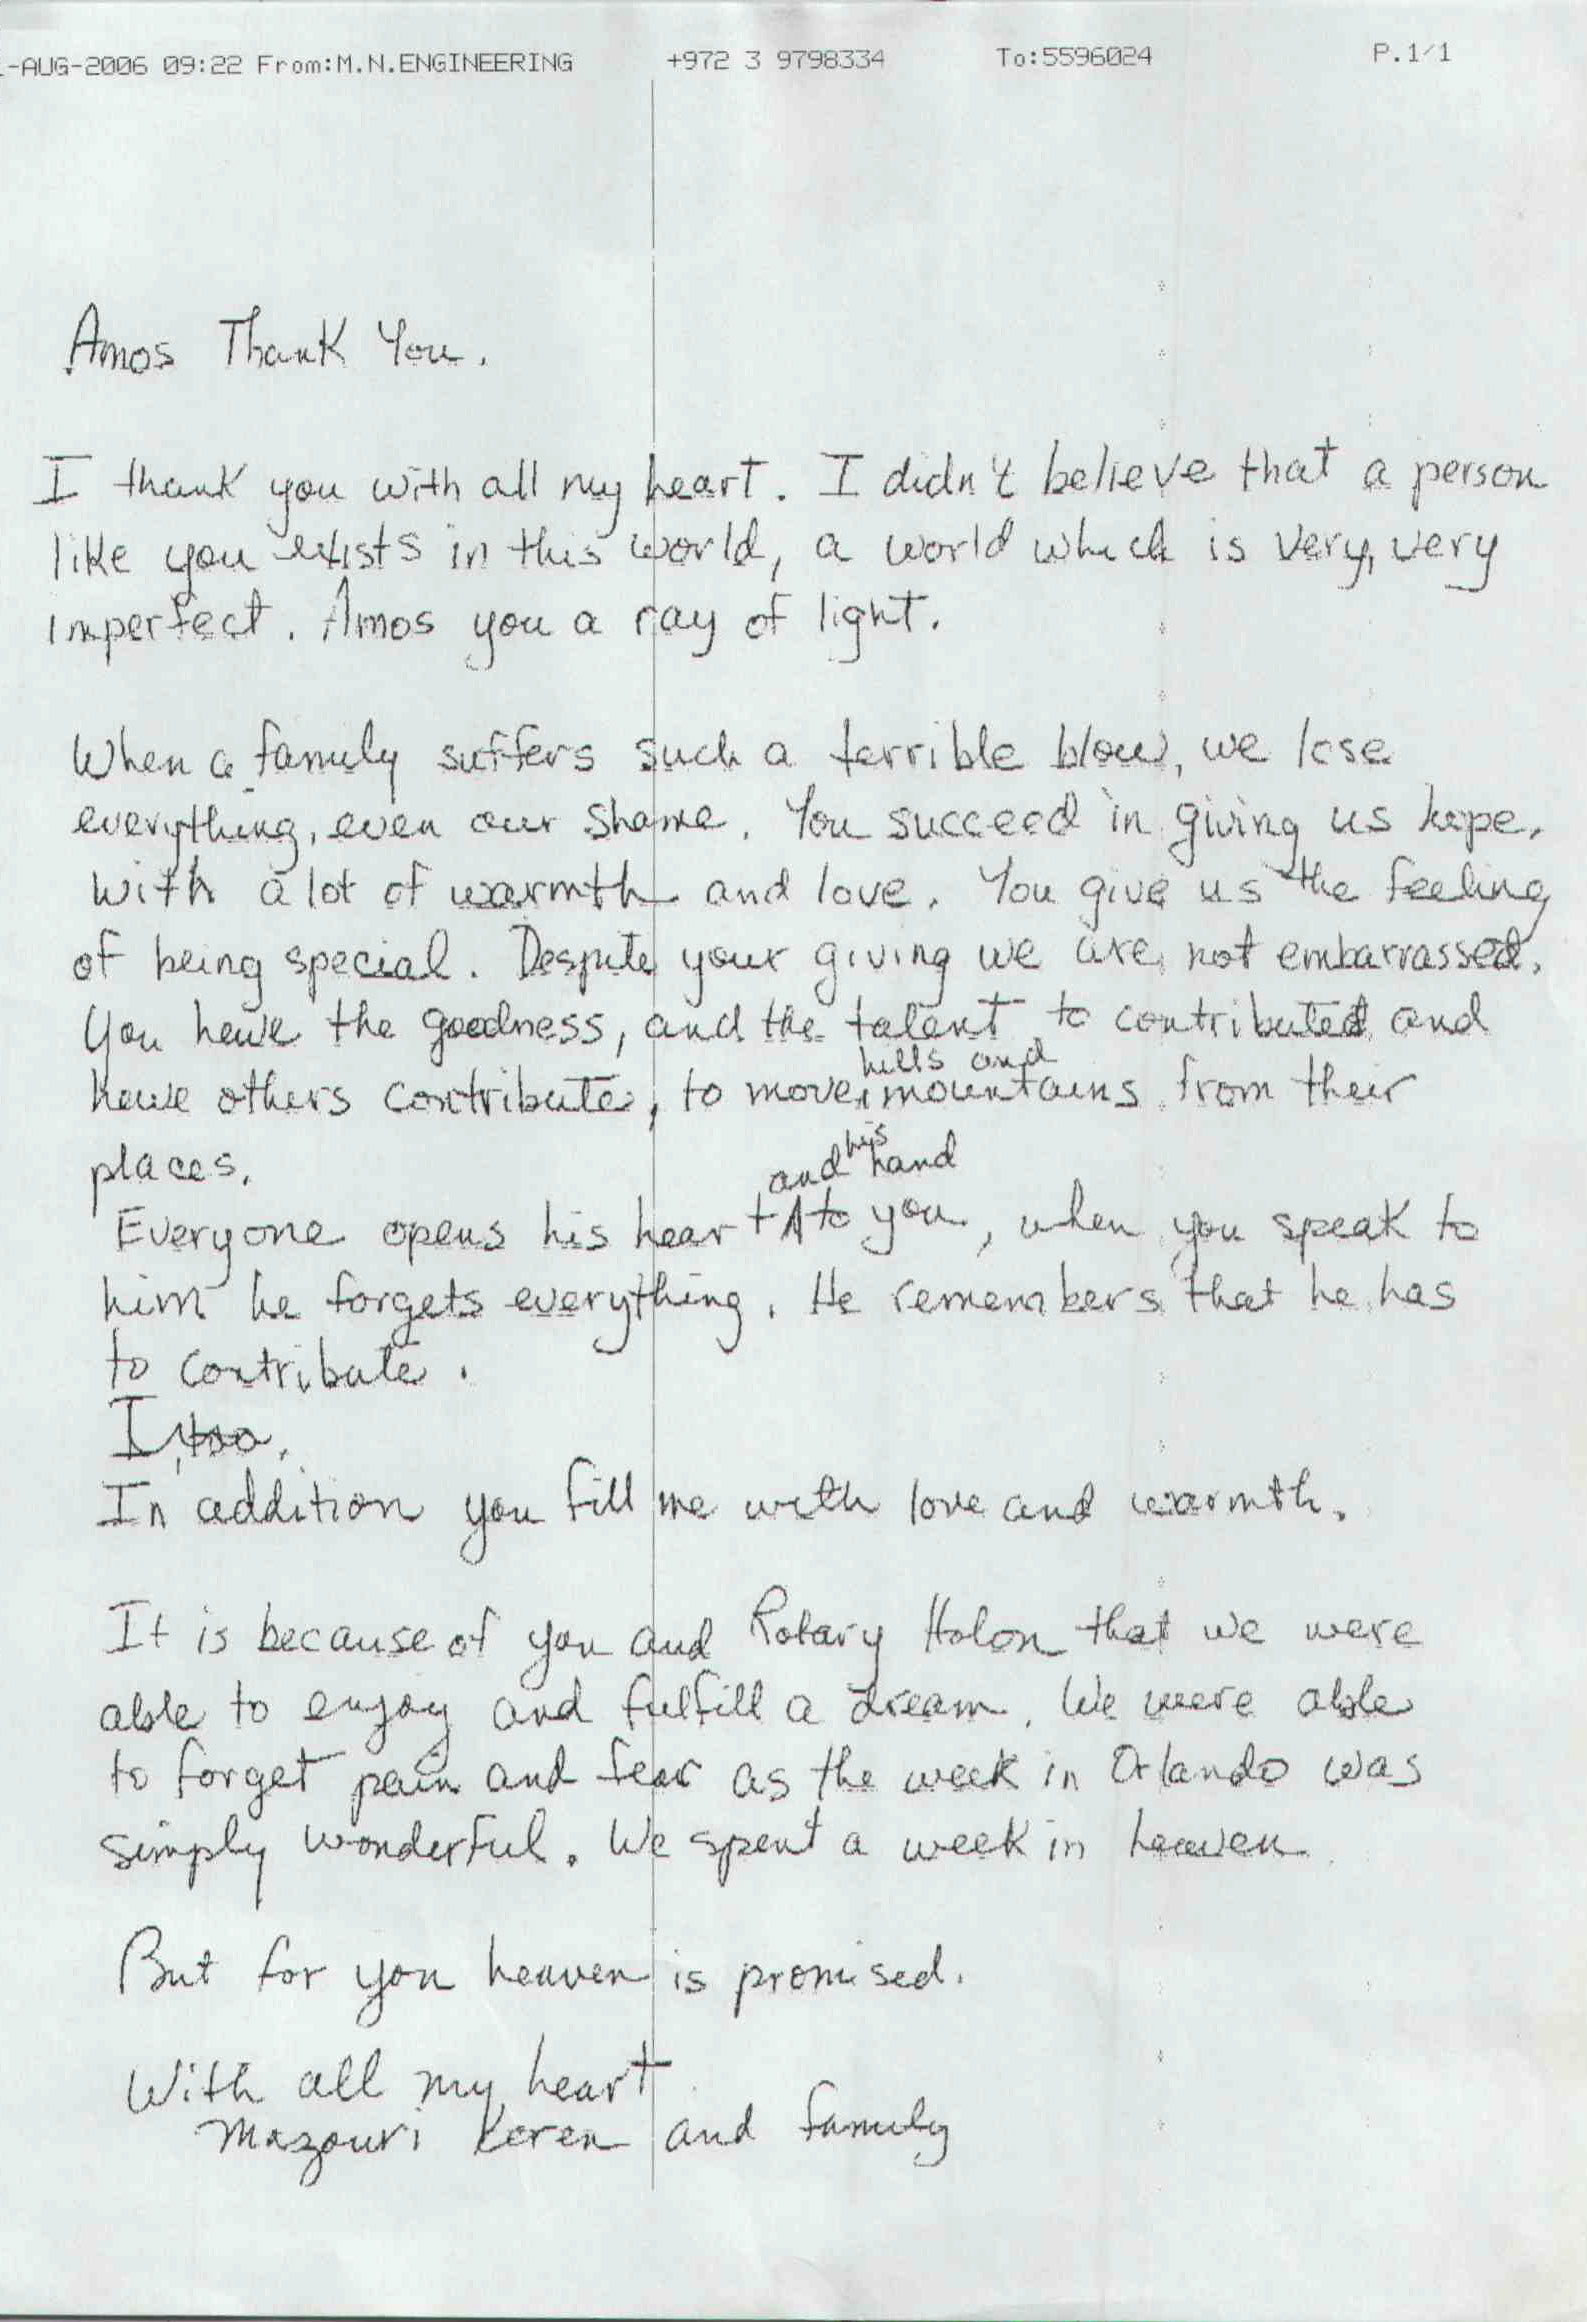 -AUG-2006 09:22 From:M.N.ENGINEERING +972 3 9798334 To:5596024 P.1/1
Amos Thank You.
I thank you with all my heart. I didn't believe that a person
like you exists in this world, a world which is very, very
imperfect. Amos you a ray of light.
When a family suffers such a terrible blow, we lose
everything, even our shame. You succeed in giving us hope.
with a lot of warmth and love. You give us the feeling
of being special. Despite your giving we are not embarrassed.
You have the goodness, and the talent to contributed and
hills and
have others contribute, to move mountains from their
places.
and his hand
Everyone opens his heart to you, when you speak to
him he forgets everything. He remembers that he has
to contribute.
I, too.
In addition you fill me with love and warmth.
It is because of you and Rotary Holon that we were
able to enjoy and fulfill a dream. We were able
to forget pain and fear as the week in Orlando was
simply wonderful. We spent a week in heaven.
But for you heaven is promised.
With all my heart
Mazouri Keren and family